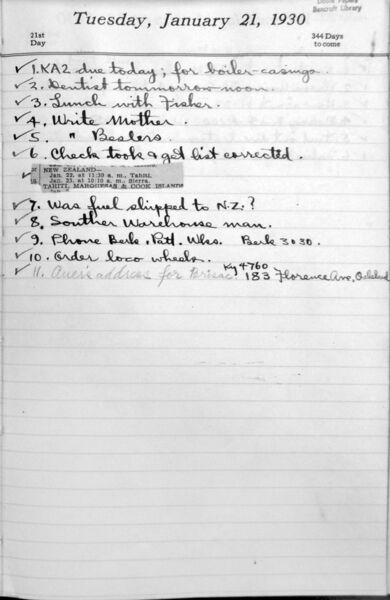 Doble Papers
Bancroft Library
Tuesday, January 21, 1930
21st
Day
344 Days
to come
✓ 1. KA2 due today; for boiler-casings.
✓ 2. Dentist tommorrow noon.
✓ 3. Lunch with Fisher.
✓ 4. Write Mother.
✓ 5. " Beslers.
✓ 6. Check took & get list corrected.
NEW ZEALAND—
Jan. 22, at 11:30 a. m., Tahiti.
Jan. 25, at 10:10 a. m., Sierra.
TAHITI, MARQUESAS & COOK ISLANDS
✓ 7. Was fuel shipped to N.Z.?
✓ 8. Souther Warehouse man.
✓ 9. Phone Berk. Patt. Wks. Berk 3030.
✓ 10. Order loco wheels.
✓ 11. address for Brisac. 183 Florence Ave, Oakland
4760